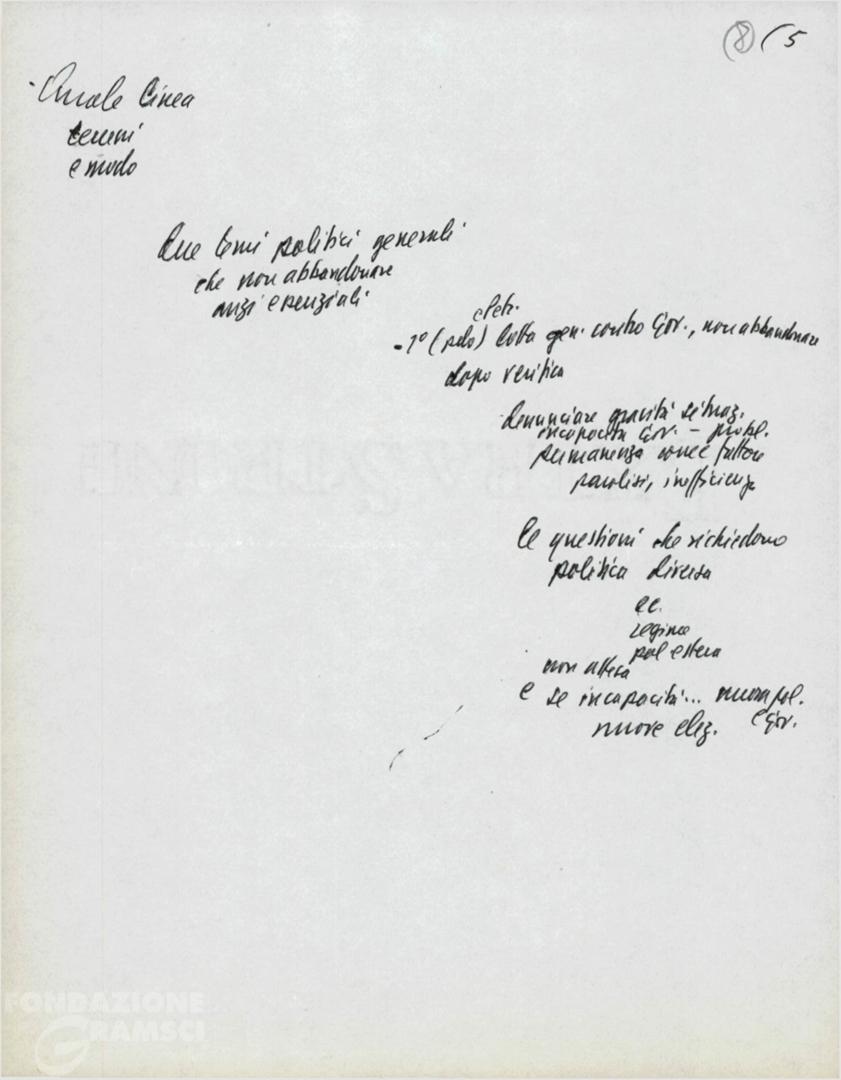 (8) (5
- Quale linea
temi
e modo
Due temi politici generali
che non abbandonare
anzi essenziali
elett.
- 1° (polo) lotta gen. contro Gov., non abbandonare
dopo verifica
denunciare gravità situaz.
incapacità Gov. - probl.
permanenza come fattore
paralisi, inefficienza
le questioni che richiedono
politica diversa
ec.
regime
pol estera
non attesa
e se incapacità... nuova pol.
e Gov.
nuove elez.
FONDAZIONE
GRAMSCI